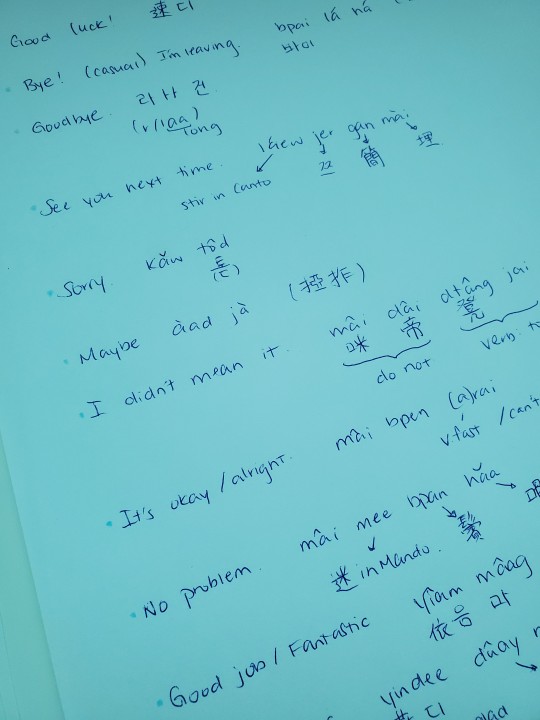 Good luck! 速 디
bpai lá ná (
Bye! (casual) I'm leaving. 바이
Goodbye. 라 ㅏ 건
(r/laa) long
See you next time. láew jer gan mài
stir in Canto 쯔 簡 埋
Sorry kǎw tôd
Maybe àad jà (掗拃)
I didn't mean it. mâi dâi dtâng jai
咪 帝 凳
do not verb: t
It's okay / alright. mâi bpen (a)rai
v.fast / can't
No problem. mâi mee bpan hǎa
迷 in Mando.
Good job / Fantastic yîam mâng
依음 마
yindee dûay
디